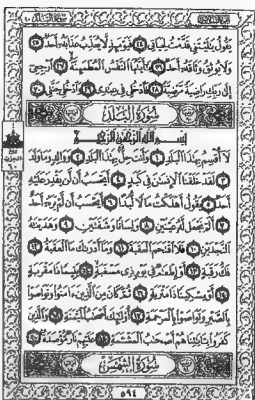 يَقُولُ يَالَيْتَنِي قَدَّمْتُ لِحَيَاتِي ٢٤ فَيَوْمَئِذٍ لَّا يُعَذِّبُ عَذَابَهُ أَحَدٌ ٢٥
وَلَا يُوثِقُ وَثَاقَهُ أَحَدٌ ٢٦ يَا أَيَّتُهَا النَّفْسُ الْمُطْمَئِنَّةُ ٢٧ ارْجِعِي
إِلَى رَبِّكِ رَاضِيَةً مَّرْضِيَّةً ٢٨ فَادْخُلِي فِي عِبَادِي ٢٩ وَادْخُلِي جَنَّتِي ٣٠
سُورَةُ الْبَلَدِ
بِسْمِ اللَّهِ الرَّحْمَٰنِ الرَّحِيمِ
لَا أُقْسِمُ بِهَٰذَا الْبَلَدِ ١ وَأَنتَ حِلٌّ بِهَٰذَا الْبَلَدِ ٢ وَوَالِدٍ وَمَا وَلَدَ
٣ لَقَدْ خَلَقْنَا الْإِنسَانَ فِي كَبَدٍ ٤ أَيَحْسَبُ أَن لَّن يَقْدِرَ عَلَيْهِ
أَحَدٌ ٥ يَقُولُ أَهْلَكْتُ مَالًا لُّبَدًا ٦ أَيَحْسَبُ أَن لَّمْ يَرَهُ أَحَدٌ
٧ أَلَمْ نَجْعَل لَّهُ عَيْنَيْنِ ٨ وَلِسَانًا وَشَفَتَيْنِ ٩ وَهَدَيْنَاهُ
النَّجْدَيْنِ ١٠ فَلَا اقْتَحَمَ الْعَقَبَةَ ١١ وَمَا أَدْرَاكَ مَا الْعَقَبَةُ ١٢
فَكُّ رَقَبَةٍ ١٣ أَوْ إِطْعَامٌ فِي يَوْمٍ ذِي مَسْغَبَةٍ ١٤ يَتِيمًا ذَا مَقْرَبَةٍ
١٥ أَوْ مِسْكِينًا ذَا مَتْرَبَةٍ ١٦ ثُمَّ كَانَ مِنَ الَّذِينَ آمَنُوا وَتَوَاصَوْا
بِالصَّبْرِ وَتَوَاصَوْا بِالْمَرْحَمَةِ ١٧ أُولَٰئِكَ أَصْحَابُ الْمَيْمَنَةِ ١٨ وَالَّذِينَ
كَفَرُوا بِآيَاتِنَا هُمْ أَصْحَابُ الْمَشْأَمَةِ ١٩ عَلَيْهِمْ نَارٌ مُّؤْصَدَةٌ ٢٠
سُورَةُ الشَّمْسِ
٥٩٤